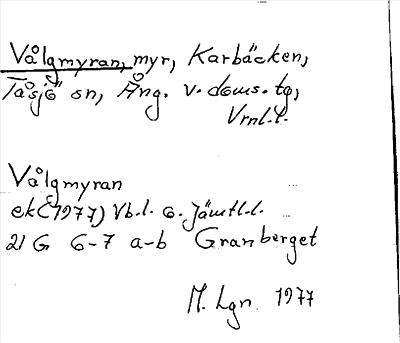 Vålgmyran, myr, Karbäcken,
Tåsjö sn, Ång. v. doms. tg,
Vrnl.l.
Vålgmyran
ek (1977) Vb.l. o. Jämtl.l.
21 G 6-7 a-b Granberget
M. Lgn. 1977